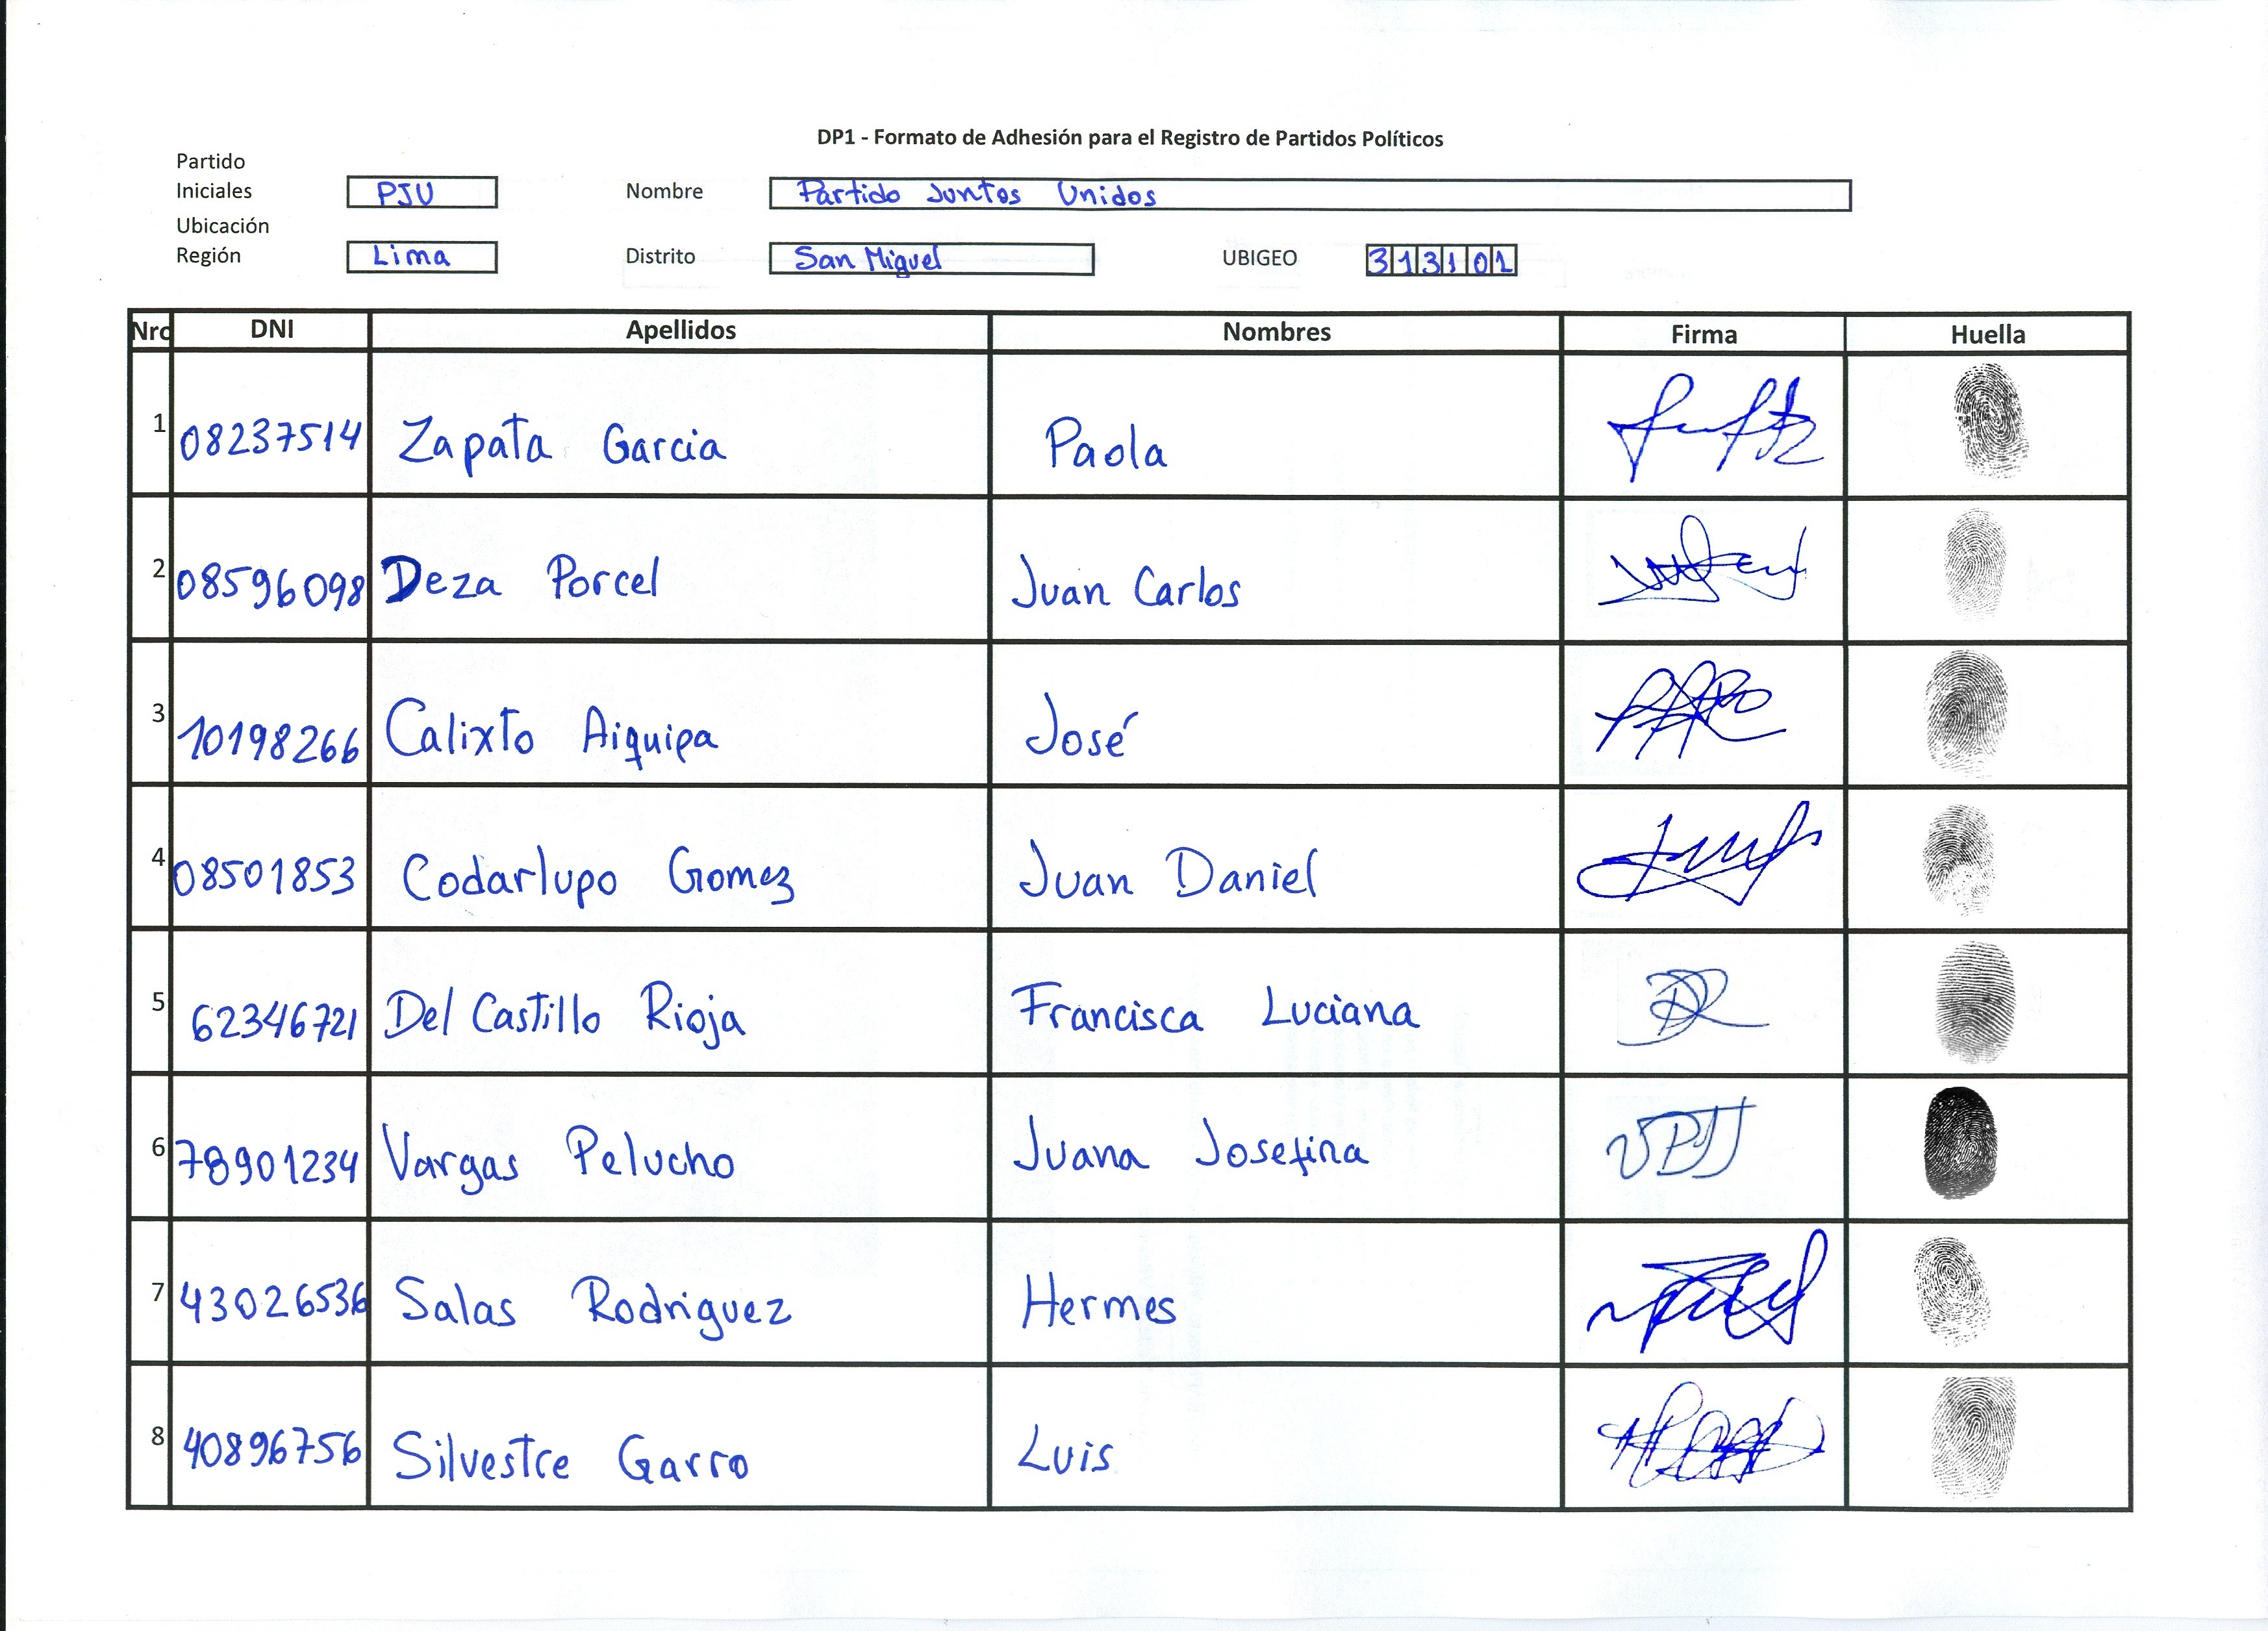 DP1 - Formato de Adhesión para el Registro de Partidos Políticos
Partido
Iniciales PJU Nombre Partido Juntos Unidos
Ubicación
Región Lima Distrito San Miguel UBIGEO 313101
Nro DNI Apellidos Nombres Firma Huella
1 08237514 Zapata Garcia Paola
2 08596098 Deza Porcel Juan Carlos
3 10198266 Calixto Aiquipa José
4 08501853 Codarlupo Gomez Juan Daniel
5 62346721 Del Castillo Rioja Francisca Luciana
6 78901234 Vargas Pelucho Juana Josefina
7 43026536 Salas Rodriguez Hermes
8 40896756 Silvestre Garro Luis